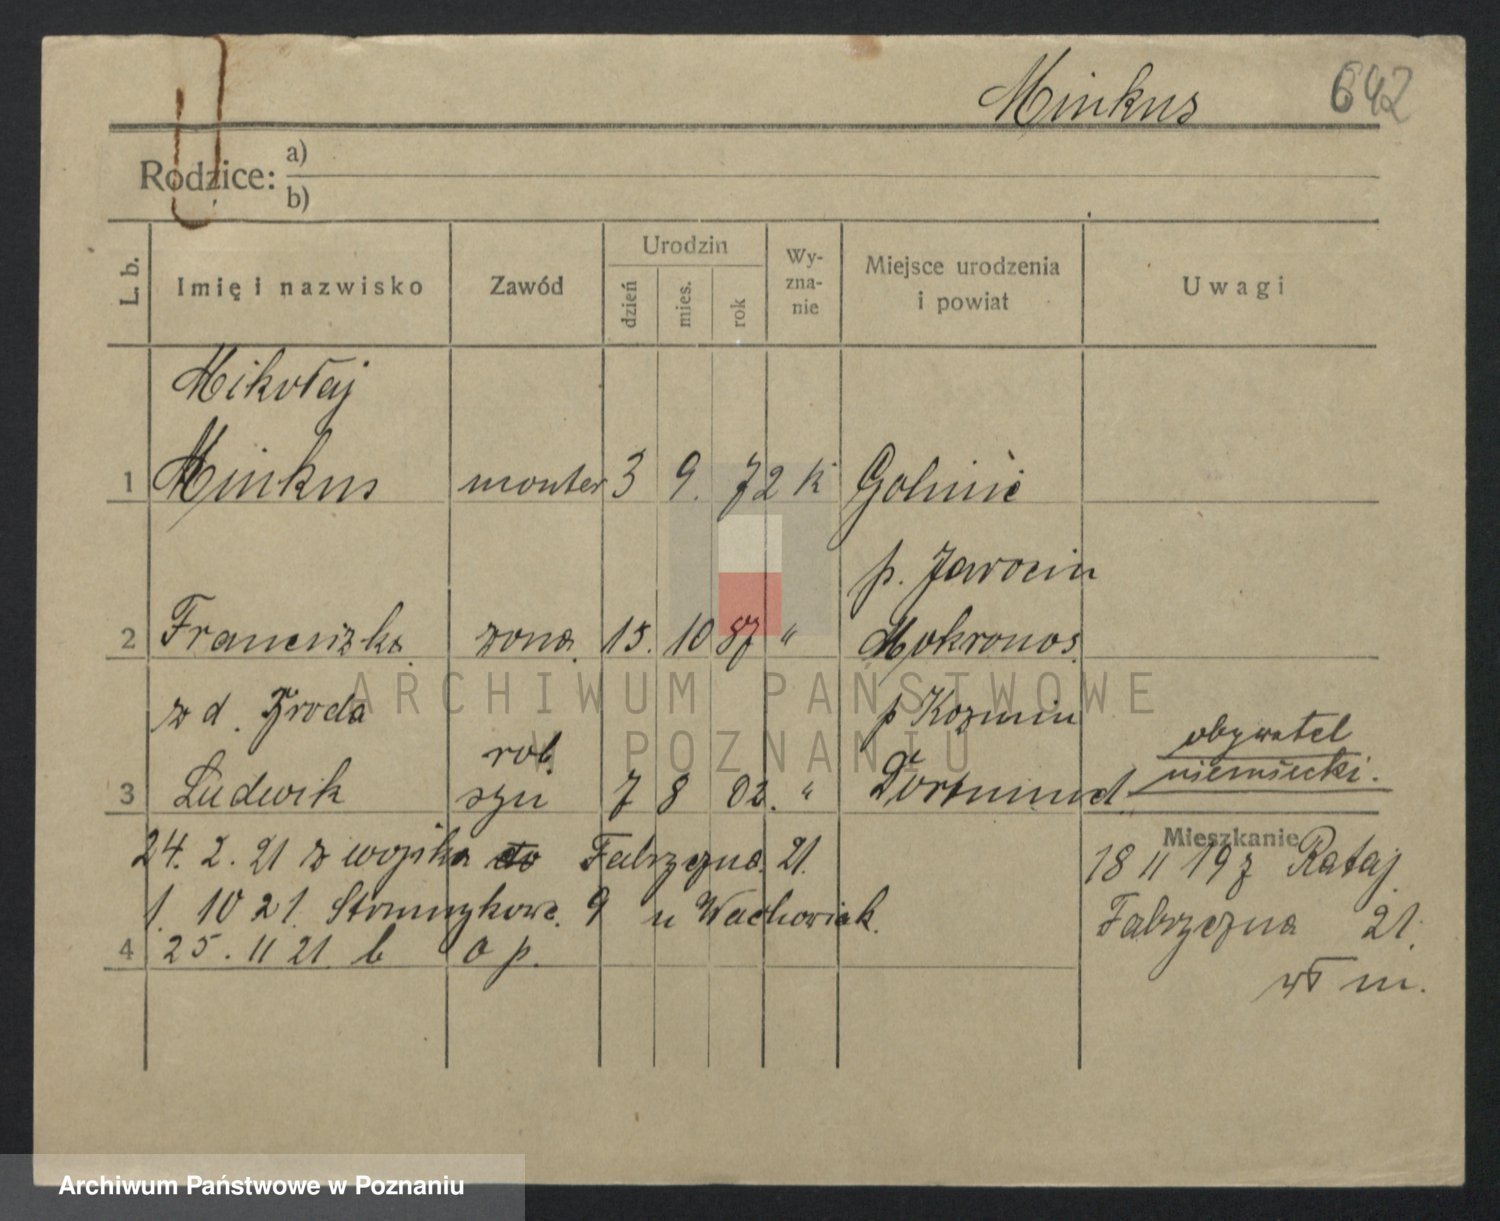 Minkus 642
Rodzice: a)
b)
L. b. Imię i nazwisko Zawód Urodzin dzień mies. rok Wy-zna-nie Miejsce urodzenia i powiat Uwagi
Mikołaj
1 Minkus monter 3 9. 72 k
p. Jarocin
2 Franciszka żona 15. 10 87 " Mokronos
z d. Zroda p Kozmin
rob. obywatel
3 Ludwik syn 7 8 02. " Dortmund niemiecki.
Mieszkanie
24. 2. 21 z wojska do Fabryczna 21. 18 11 19 z Rataj
1. 10 21. 9 u Wachowiak. Fabryczna 21.
4 25. 11 21 b o p.
wł m.
ARCHIWUM PAŃSTWOWE
W POZNANIU
Archiwum Państwowe w Poznaniu